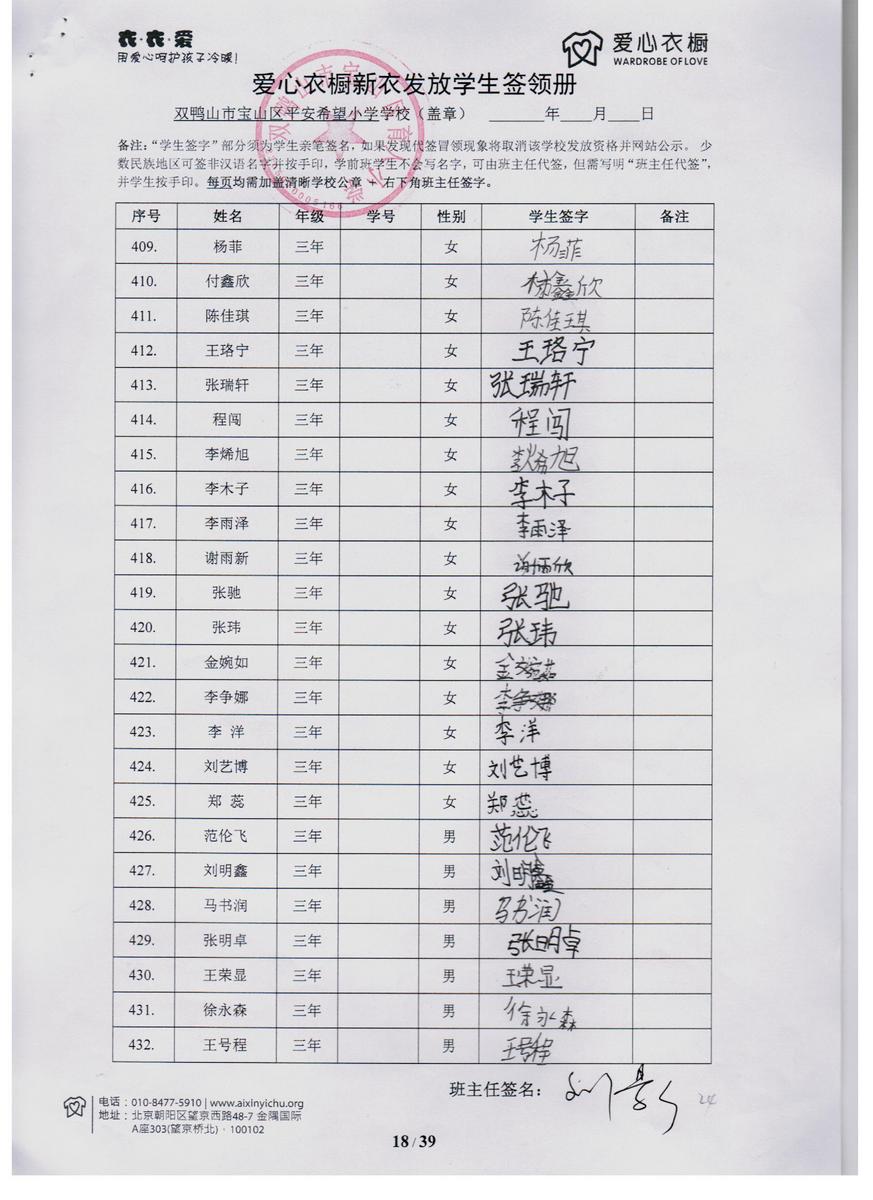 衣·衣·爱
用爱心呵护孩子冷暖!
爱心衣橱
WARDROBE OF LOVE
爱心衣橱新衣发放学生签领册
双鸭山市宝山区平安希望小学学校（盖章） ____年___月___日
备注：“学生签字”部分须为学生亲笔签名，如果发现代签冒领现象将取消该学校发放资格并网站公示。 少
数民族地区可签非汉语名字并按手印，学前班学生不会写名字，可由班主任代签，但需写明“班主任代签”，
并学生按手印。每页均需加盖清晰学校公章 + 右下角班主任签字。
序号 姓名 年级 学号 性别 学生签字 备注
409. 杨菲 三年 女 杨菲
410. 付鑫欣 三年 女 鑫欣
411. 陈佳琪 三年 女 陈佳琪
412. 王珞宁 三年 女 王珞宁
413. 张瑞轩 三年 女 张瑞轩
414. 程闯 三年 女 程闯
415. 李烯旭 三年 女 李烯旭
416. 李木子 三年 女 李木子
417. 李雨泽 三年 女 李雨泽
418. 谢雨新 三年 女 谢雨欣
419. 张驰 三年 女 张驰
420. 张玮 三年 女 张玮
421. 金婉如 三年 女 金婉茹
422. 李争娜 三年 女 李争娜
423. 李 洋 三年 女 李洋
424. 刘艺博 三年 女 刘艺博
425. 郑 蕊 三年 女 郑蕊
426. 范伦飞 三年 男 范伦飞
427. 刘明鑫 三年 男 刘明鑫
428. 马书润 三年 男 马书润
429. 张明卓 三年 男 张明卓
430. 王荣显 三年 男 王荣显
431. 徐永森 三年 男 徐永森
432. 王号程 三年 男 王号程
班主任签名：
24
电话：010-8477-5910 | www.aixinyichu.org
地址：北京朝阳区望京西路48-7 金隅国际
A座303(望京桥北)，100102
18 / 39